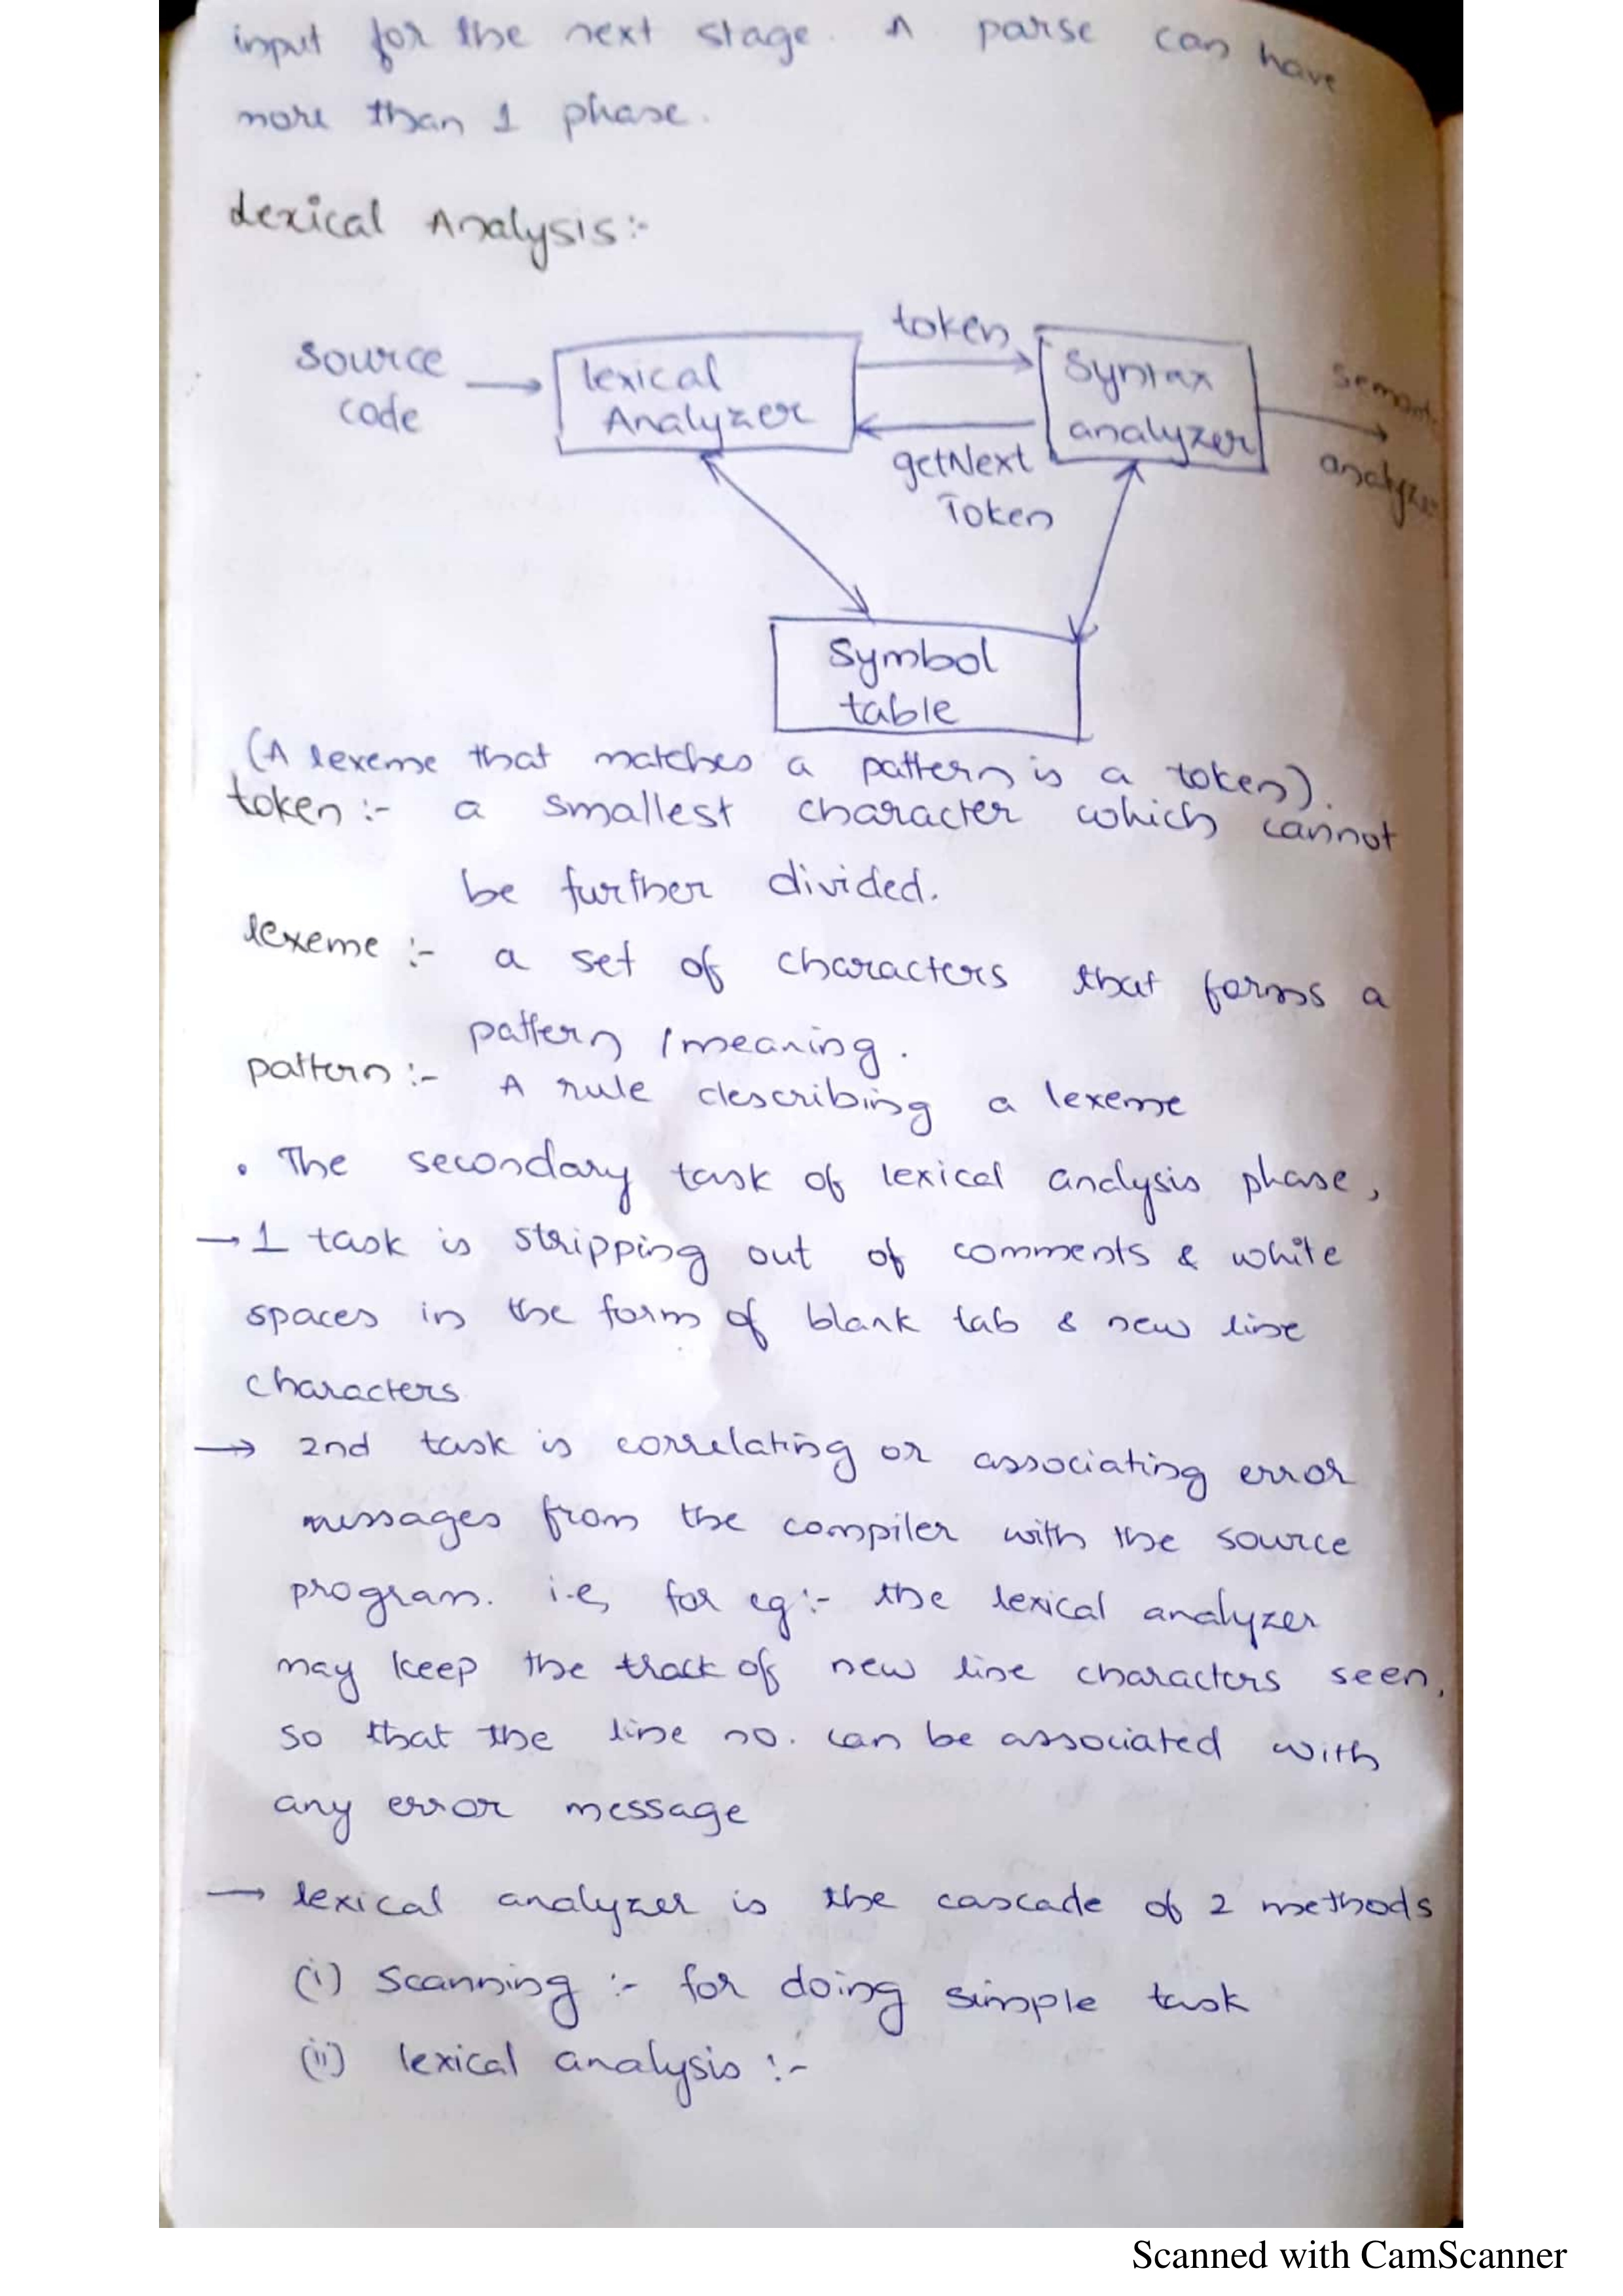 input for the next stage. A parse can have
more than 1 phase.
Lexical Analysis:-
source
code
lexical
Analyzer
token
getNext
Token
Syntax
analyzer
semantic
analyzer
Symbol
table
(A lexeme that matches a pattern is a token).
token :- a smallest character which cannot
be further divided.
lexeme :- a set of characters that forms a
pattern / meaning.
pattern :- A rule describing a lexeme
• The secondary task of lexical analysis phase,
→ 1 task is stripping out of comments & white
spaces in the form of blank tab & new line
characters
→ 2nd task is correlating or associating error
messages from the compiler with the source
program. i.e, for eg:- the lexical analyzer
may keep the track of new line characters seen,
so that the line no. can be associated with
any error message
→ lexical analyzer is the cascade of 2 methods
(i) Scanning :- for doing simple task
(ii) lexical analysis :-
Scanned with CamScanner